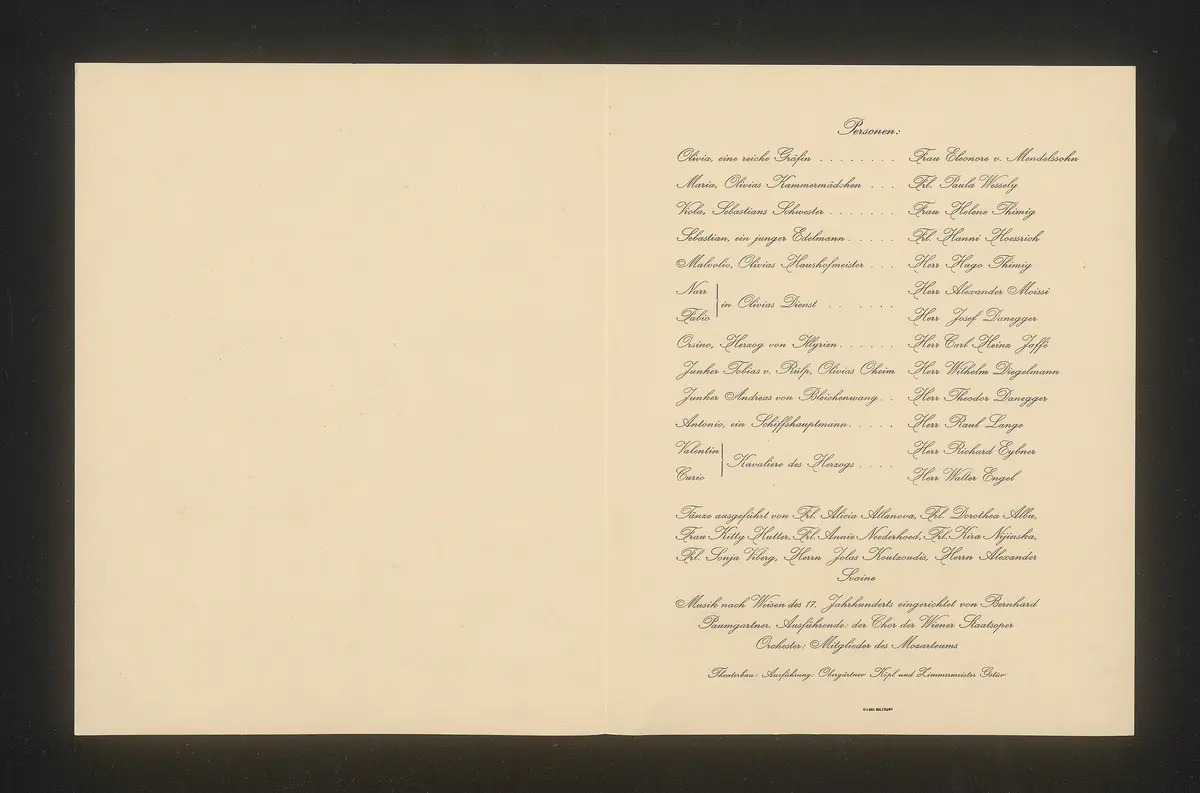 Personen:
Olivia, eine reiche Gräfin . . . . . . . . Frau Eleonore v. Mendelssohn
Maria, Olivias Kammermädchen . . . Frl. Paula Wessely
Viola, Sebastians Schwester . . . . . . . Frau Helene Thimig
Sebastian, ein junger Edelmann . . . . . Frl. Hanni Hoessrich
Malvolio, Olivias Haushofmeister . . . Herr Hugo Thimig
Narr Herr Alexander Moissi
in Olivias Dienst . . . . . . .
Fabio Herr Josef Danegger
Orsino, Herzog von Illyrien . . . . . . Herr Carl Heinz Jaffé
Junker Tobias v. Rülp, Olivias Oheim Herr Wilhelm Diegelmann
Junker Andreas von Bleichenwang . . Herr Theodor Danegger
Antonio, ein Schiffshauptmann . . . . . Herr Raul Lange
Valentin Herr Richard Eybner
Kavaliere des Herzogs . . . .
Curio Herr Walter Engel
Tänze ausgeführt von Frl. Alicia Allanova, Frl. Dorothea Albu,
Frau Kitty Hutter, Frl. Annie Neederhoed, Frl. Kira Nijinska,
Frl. Sonja Viberg, Herrn Jolas Koutzoudis, Herrn Alexander
Svaine
Musik nach Weisen des 17. Jahrhunderts eingerichtet von Bernhard
Paumgartner. Ausführende: der Chor der Wiener Staatsoper
Orchester: Mitglieder des Mozarteums
Theaterbau: Ausführung: Obergärtner Köpl und Zimmermeister